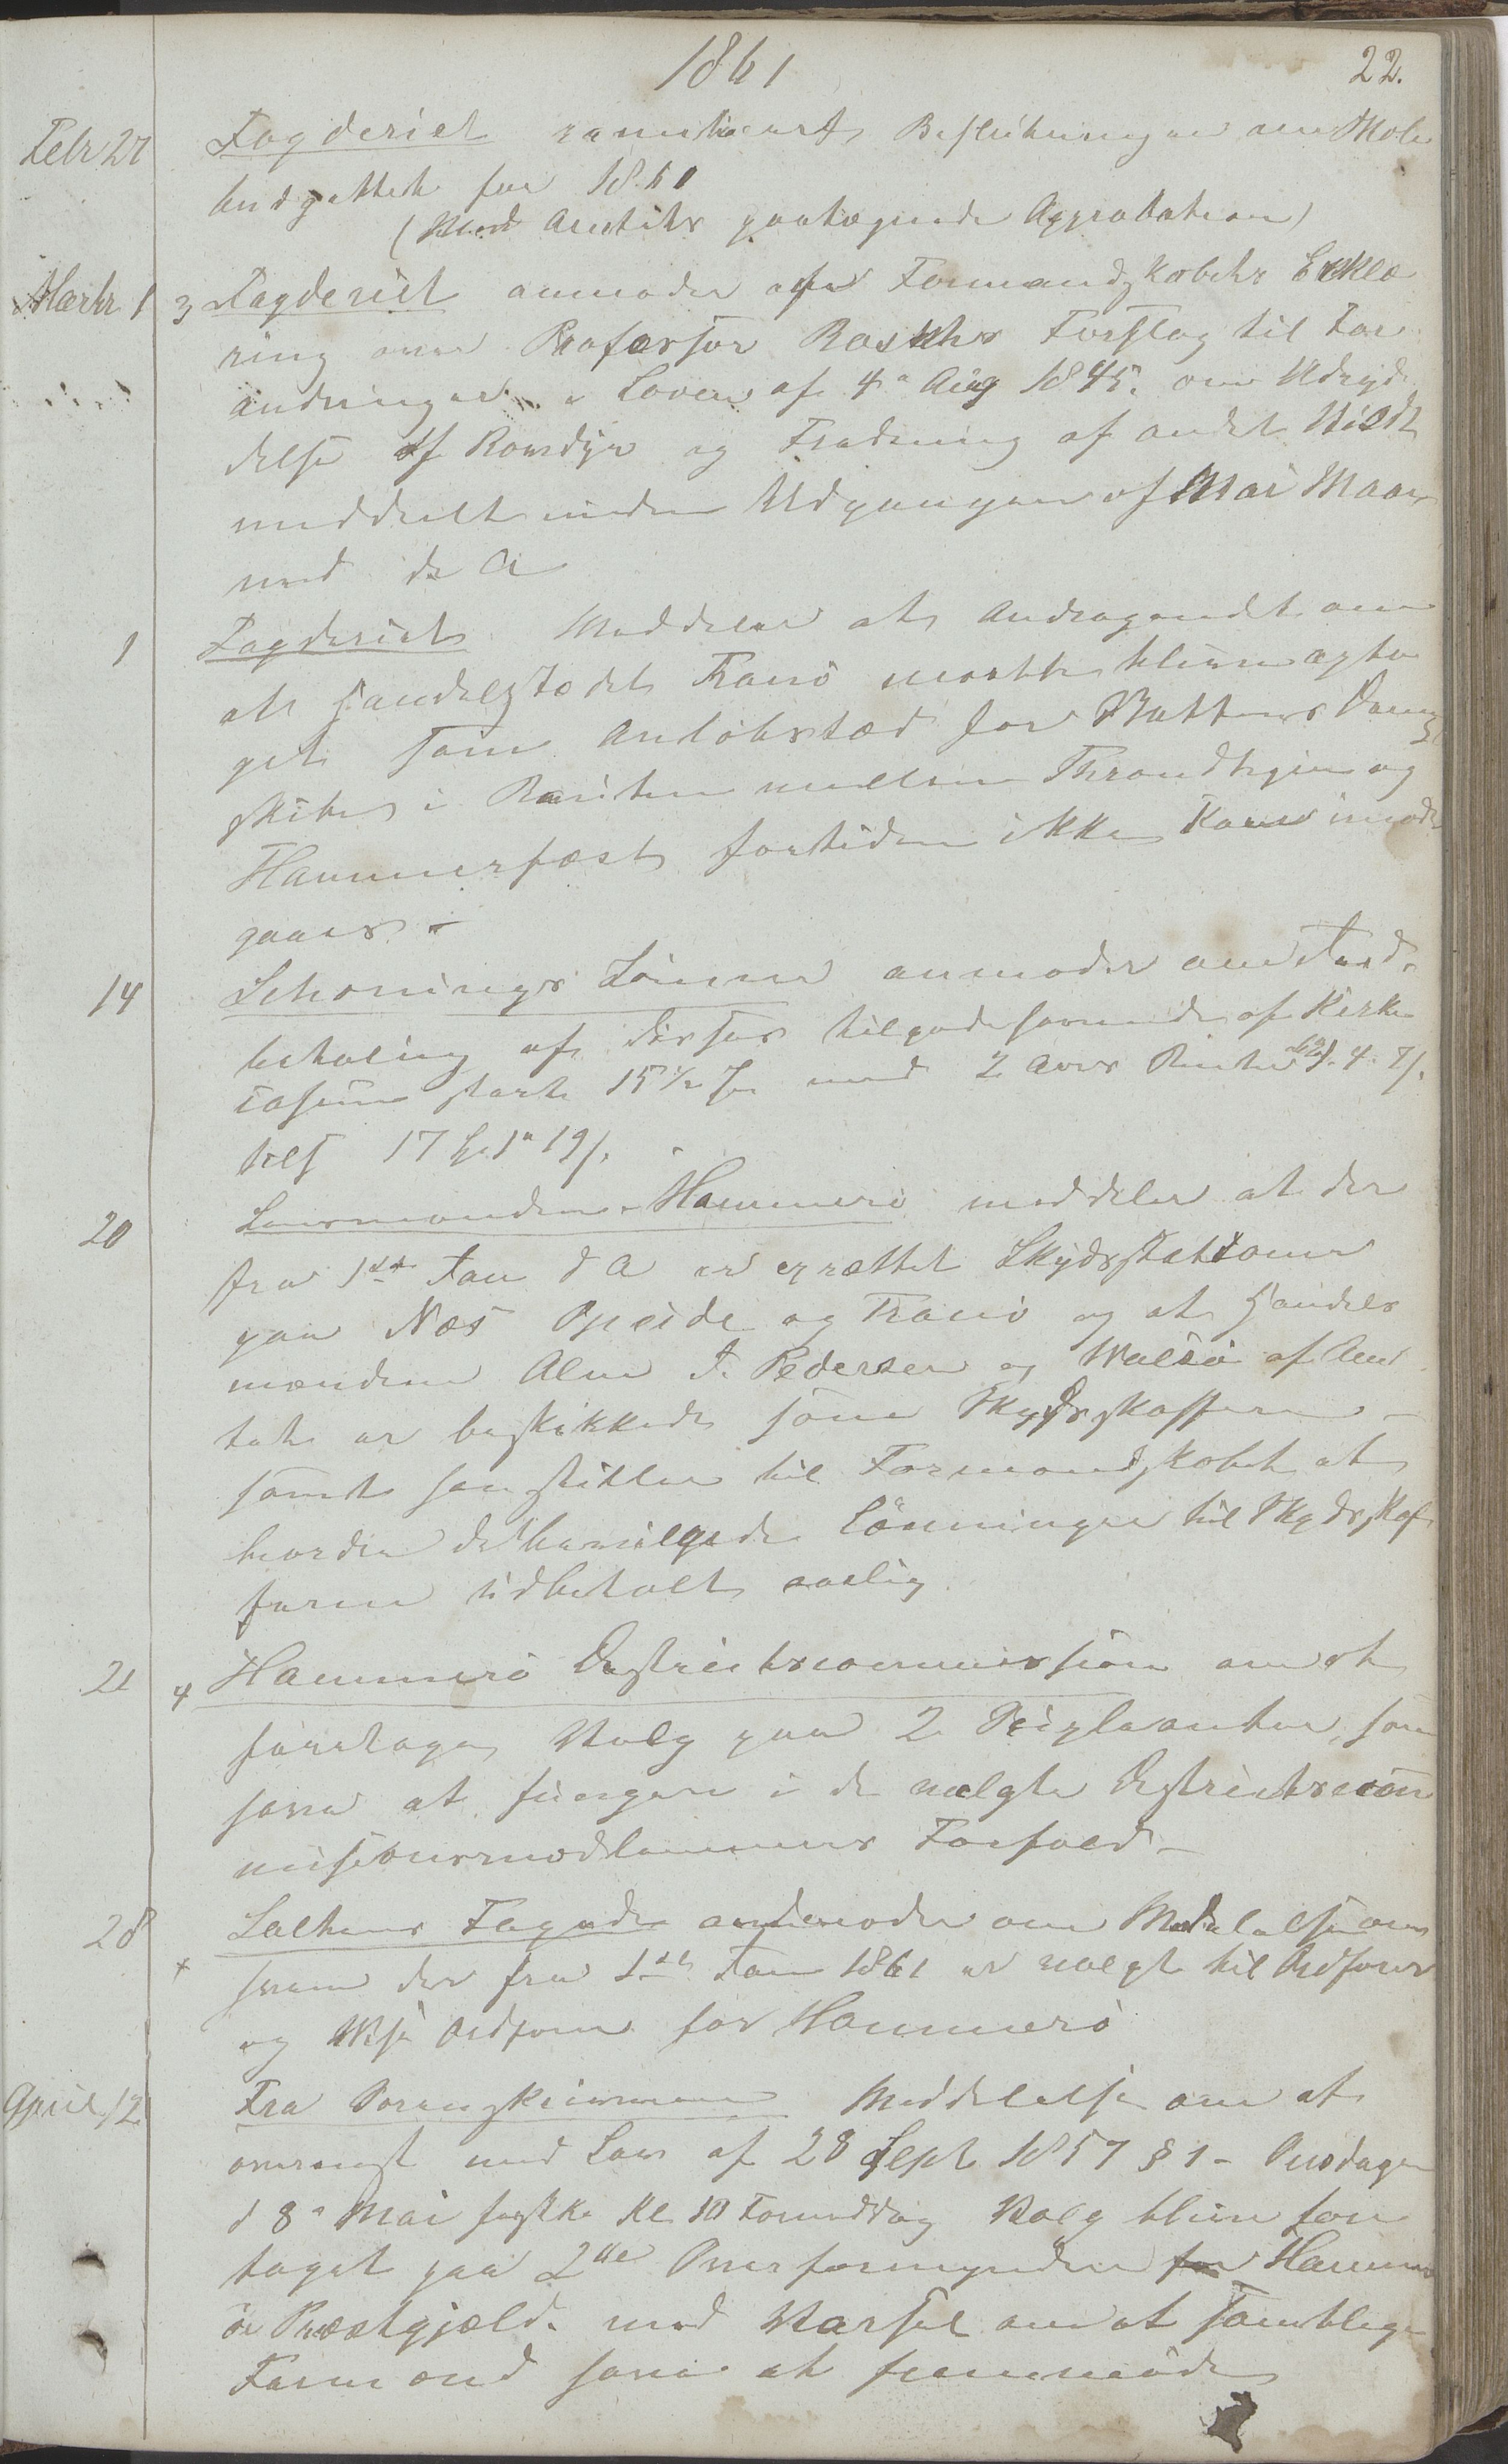 1861
22.
Febr 27 Fogderiet communicerer Beslutningen om Mole
budgettet for 1861
(Med Amtets paategnede Approbation)
Marts 1 3 Fogderiet anmoder om Formandskabets Erklæ
ring over Professor Raschs Forslag til For
andringer i Loven af 4 Aug 1845. om Udryd
delse af Rovdyr og Fredning af andet Vildt
meddelt inden Udgangen af Mai Maa
ned d. A
1 Fogderiet Meddeler at Andragendet om
at Handelstedet Tranö maatte blive opta
get som Anløbssted for Postens Damp
skibe i Routen mellem Throndhjem og
Hammerfest fortiden ikke kan imøde
gaaes. -
14 Schonings Sønner anmoder om
betaling af disses tilgodehavende af Kirke
casin stort 15 1/2 med 2 Aars Renter 4. 7/.
tils 17 1 19/.
20 Lensmanden i Hammerö meddeler at der
fra 1ste Jan d A er oprættet Skydsstationer
paa Næs Opeide og Tranö og at Handels
mændene Alm J. Pedersen og Walsö af Am
tet er beskikkede som Skydsskaffere -
samt henstiller til Formandskabet at
vorder de bevilgede Lönninger til Skydsskaf
ferne udbetalt aarlig
21 4 Hammerö Districtscommission om at
foretage Valg paa 2 Supleanter, som
have at fungere i de valgte Districtscom
missionsmedlemmers Forfald -
28 + Saltens Fogderi anmoder om Meddelelse om
hvem der fra 1ste Jan 1861 er valgt til Ordfører
og Vise Ordfører for Hammerö
April 12 Fra Sorenskriveren Meddelelse om at
overensst med Lov af 28 Sept 1857 § 1 - Onsdagen
d 8 Mai förstk. Kl 10 Formiddag Valg bliver fore
taget paa 2de Overformyndere for Hammer
ö Præstgjæld. med Varsel om at samtlige
Formænd have at fremmöde